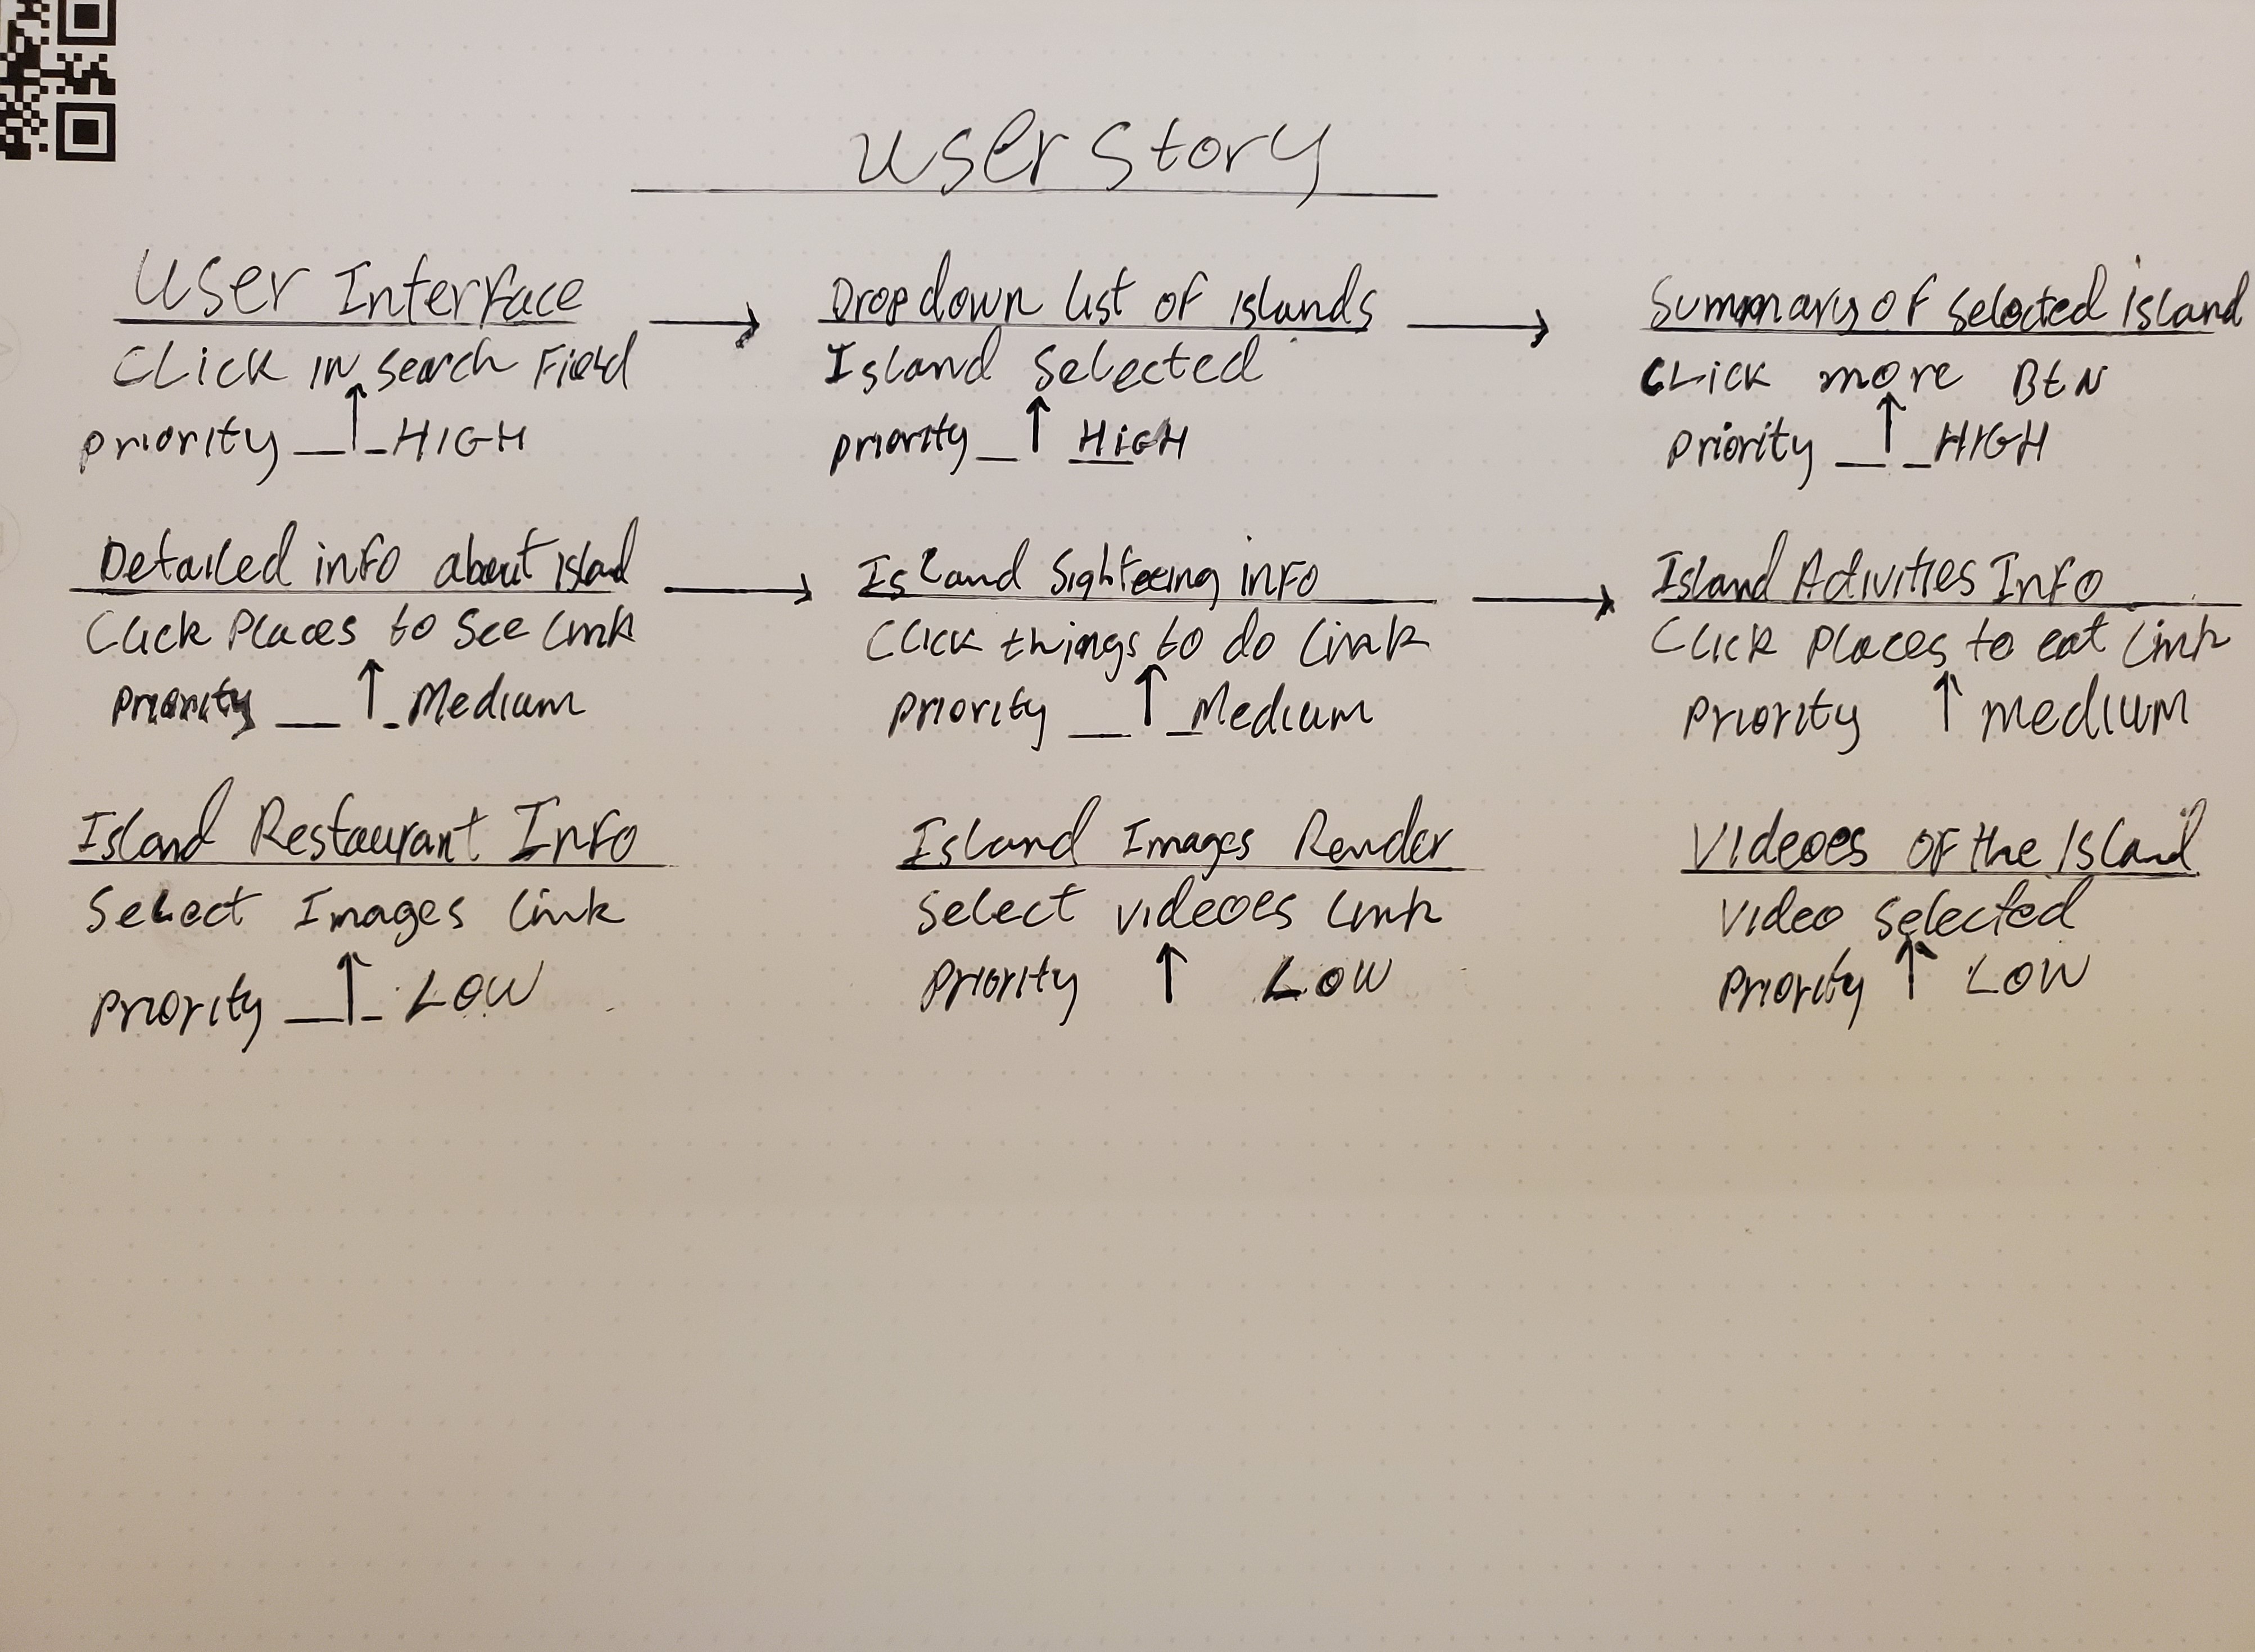 User Story
User Interface
Click in search Field
priority HIGH
Dropdown list of islands
Island selected
priority HiGH
Summary of selected island
CLick more BtN
Priority HIGH
Detailed info about island
Click Places to See link
Priority Medium
Island Sighteeing info
Click things to do link
Priority Medium
Island Activities Info
Click Places to eat link
Priority MEDIUM
Island Restaurant Info
Select Images link
Priority LOW
Island Images Render
Select videoes link
Priority LOW
Videoes OF the Island
Video selected
Priority LOW